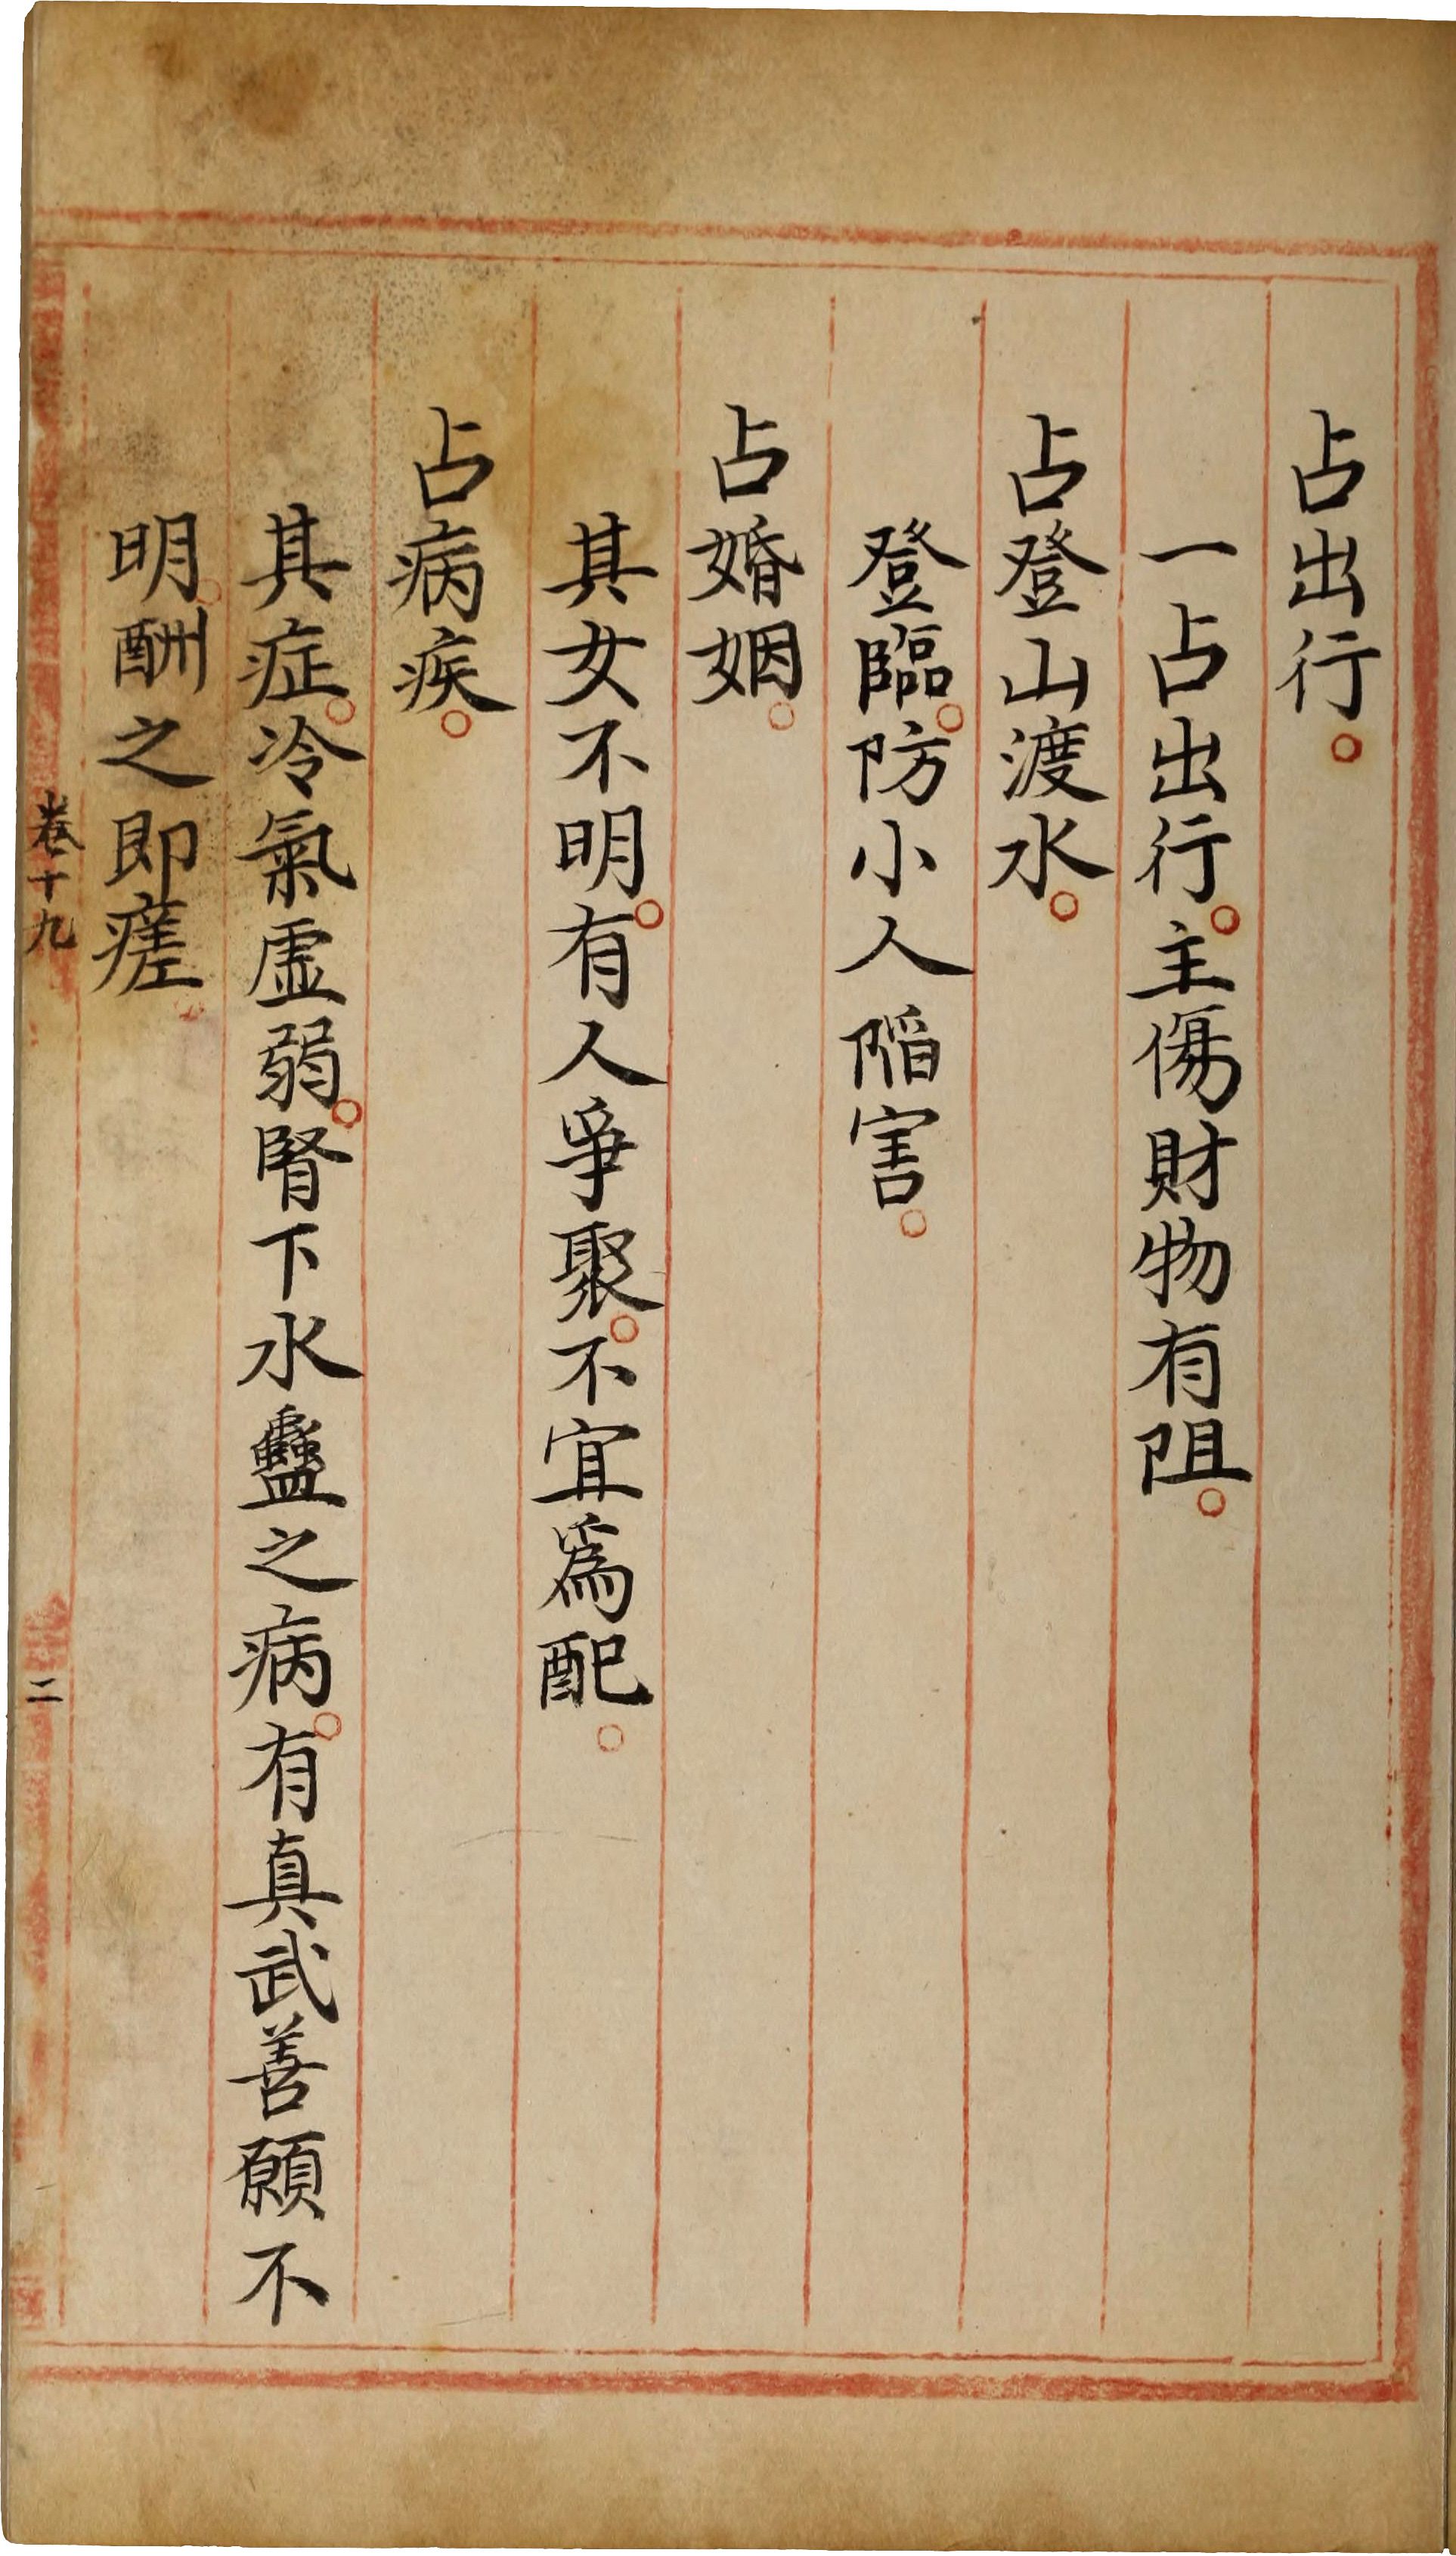 占出行。
一占出行。主傷財物有阻。
占登山渡水。
登臨。防小人陷害。
占婚姻。
其女不明。有人爭聚。不宜為配。
占病疾。
其症。冷氣虛弱。腎下水蠱之病。有真武善願不
明。酬之即瘥。
卷十九
二